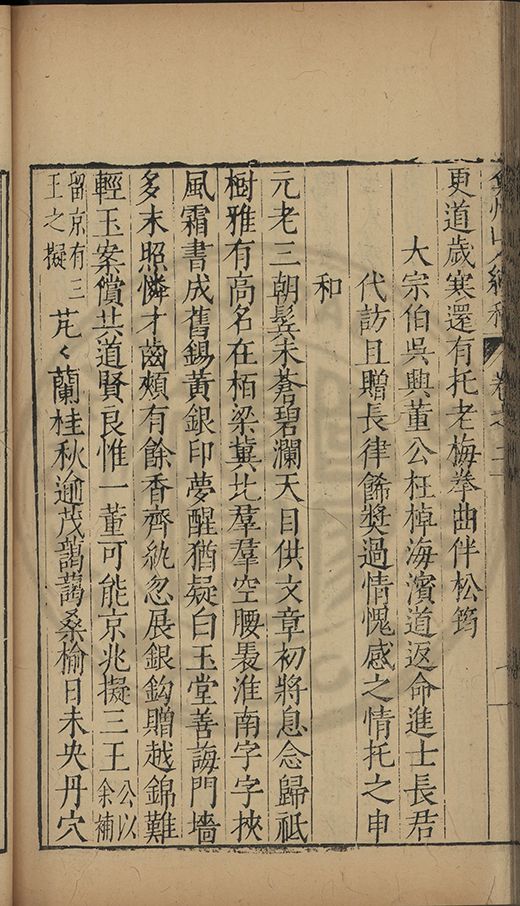 弇州山人續稿 卷之二
更道歲寒還有托老梅拳曲伴松筠
大宗伯吳興董公枉棹海濱道返命進士長君
代訪且贈長律餙奬過情愧感之情托之申
和
元老三朝鬂未蒼碧瀾天目供文章初將息念歸祗
樹雅有高名在栢梁冀北羣羣空腰褭淮南字字挾
風霜書成舊錫黃銀印夢醒猶疑白玉堂善誨門墻
多末照憐才齒頰有餘香齊紈忽展銀鈎贈越錦難
輕玉案償共道賢良惟一董可能京兆擬三王公以余補
留京有三王之擬芃〻蘭桂秋逾茂藹藹桑榆日未央丹穴